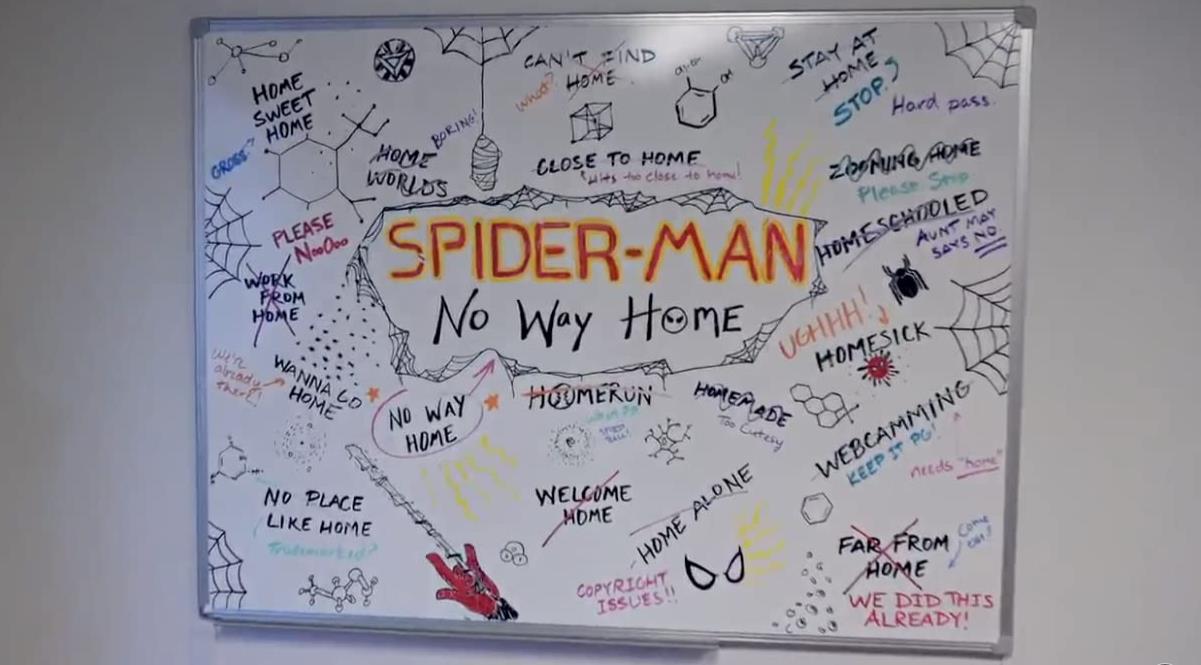 CAN'T FIND
HOME
What?
STAY AT
HOME
STOP!
Hard pass.
HOME
SWEET
HOME
GROSS!
BORING!
HOME
WORLDS
CLOSE TO HOME
Hits too close to home!
ZOOMING HOME
Please Stop
HOMESCHOOLED
AUNT MAY
SAYS NO
PLEASE
NooOoo
WORK
FROM
HOME
SPIDER-MAN
No Way Home
UGHHH!
HOMESICK
We're
already
there!
WANNA GO
HOME
NO WAY
HOME
HOOMERUN
HOMEMADE
Too Cutesy
WEBCAMMING
KEEP IT PG!
needs "home"
NO PLACE
LIKE HOME
Trademarked?
WELCOME
HOME
HOME ALONE
COPYRIGHT
ISSUES!!
FAR FROM
HOME
Come
on!
WE DID THIS
ALREADY!